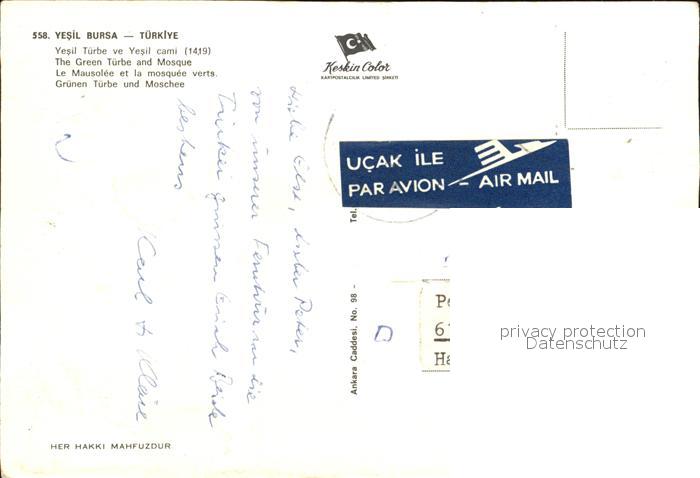 558. YEŞİL BURSA — TÜRKİYE
Yeşil Türbe ve Yeşil cami (1419)
The Green Türbe and Mosque
Le Mausolée et la mosquée verts.
Grünen Türbe und Moschee
Keskin Color
KARTPOSTALCILIK LIMITED ŞİRKETİ
UÇAK İLE
PAR AVION – AIR MAIL
Liebe Else, lieber Peter,
von unserer Tour die
Türkei grüssen Euch Beide
bestens
Karl + Kläre
Ankara Caddesi. No. 98 - Tel.
Pe
61
Ha
privacy protection
Datenschutz
HER HAKKI MAHFUZDUR